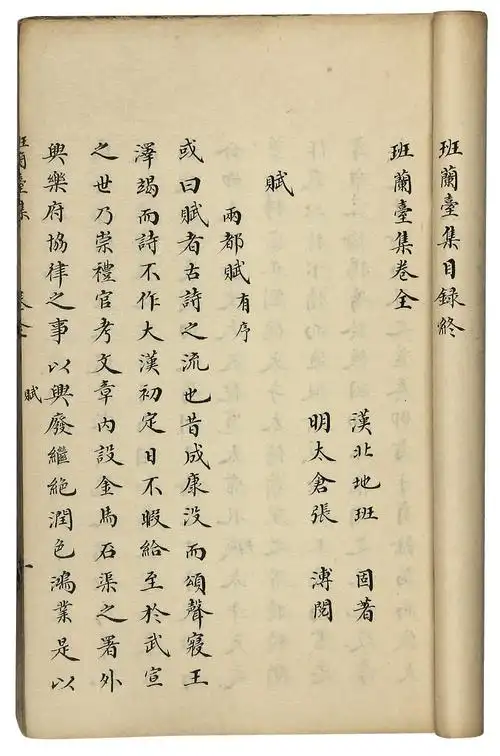 班蘭臺集目錄終
班蘭臺集卷全
漢北地班　固著
明太倉張　溥閱
賦
兩都賦有序
或曰賦者古詩之流也昔成康沒而頌聲寢王
澤竭而詩不作大漢初定日不暇給至於武宣
之世乃崇禮官考文章內設金馬石渠之署外
興樂府協律之事以興廢繼絕潤色鴻業是以
班蘭臺集　卷全　賦